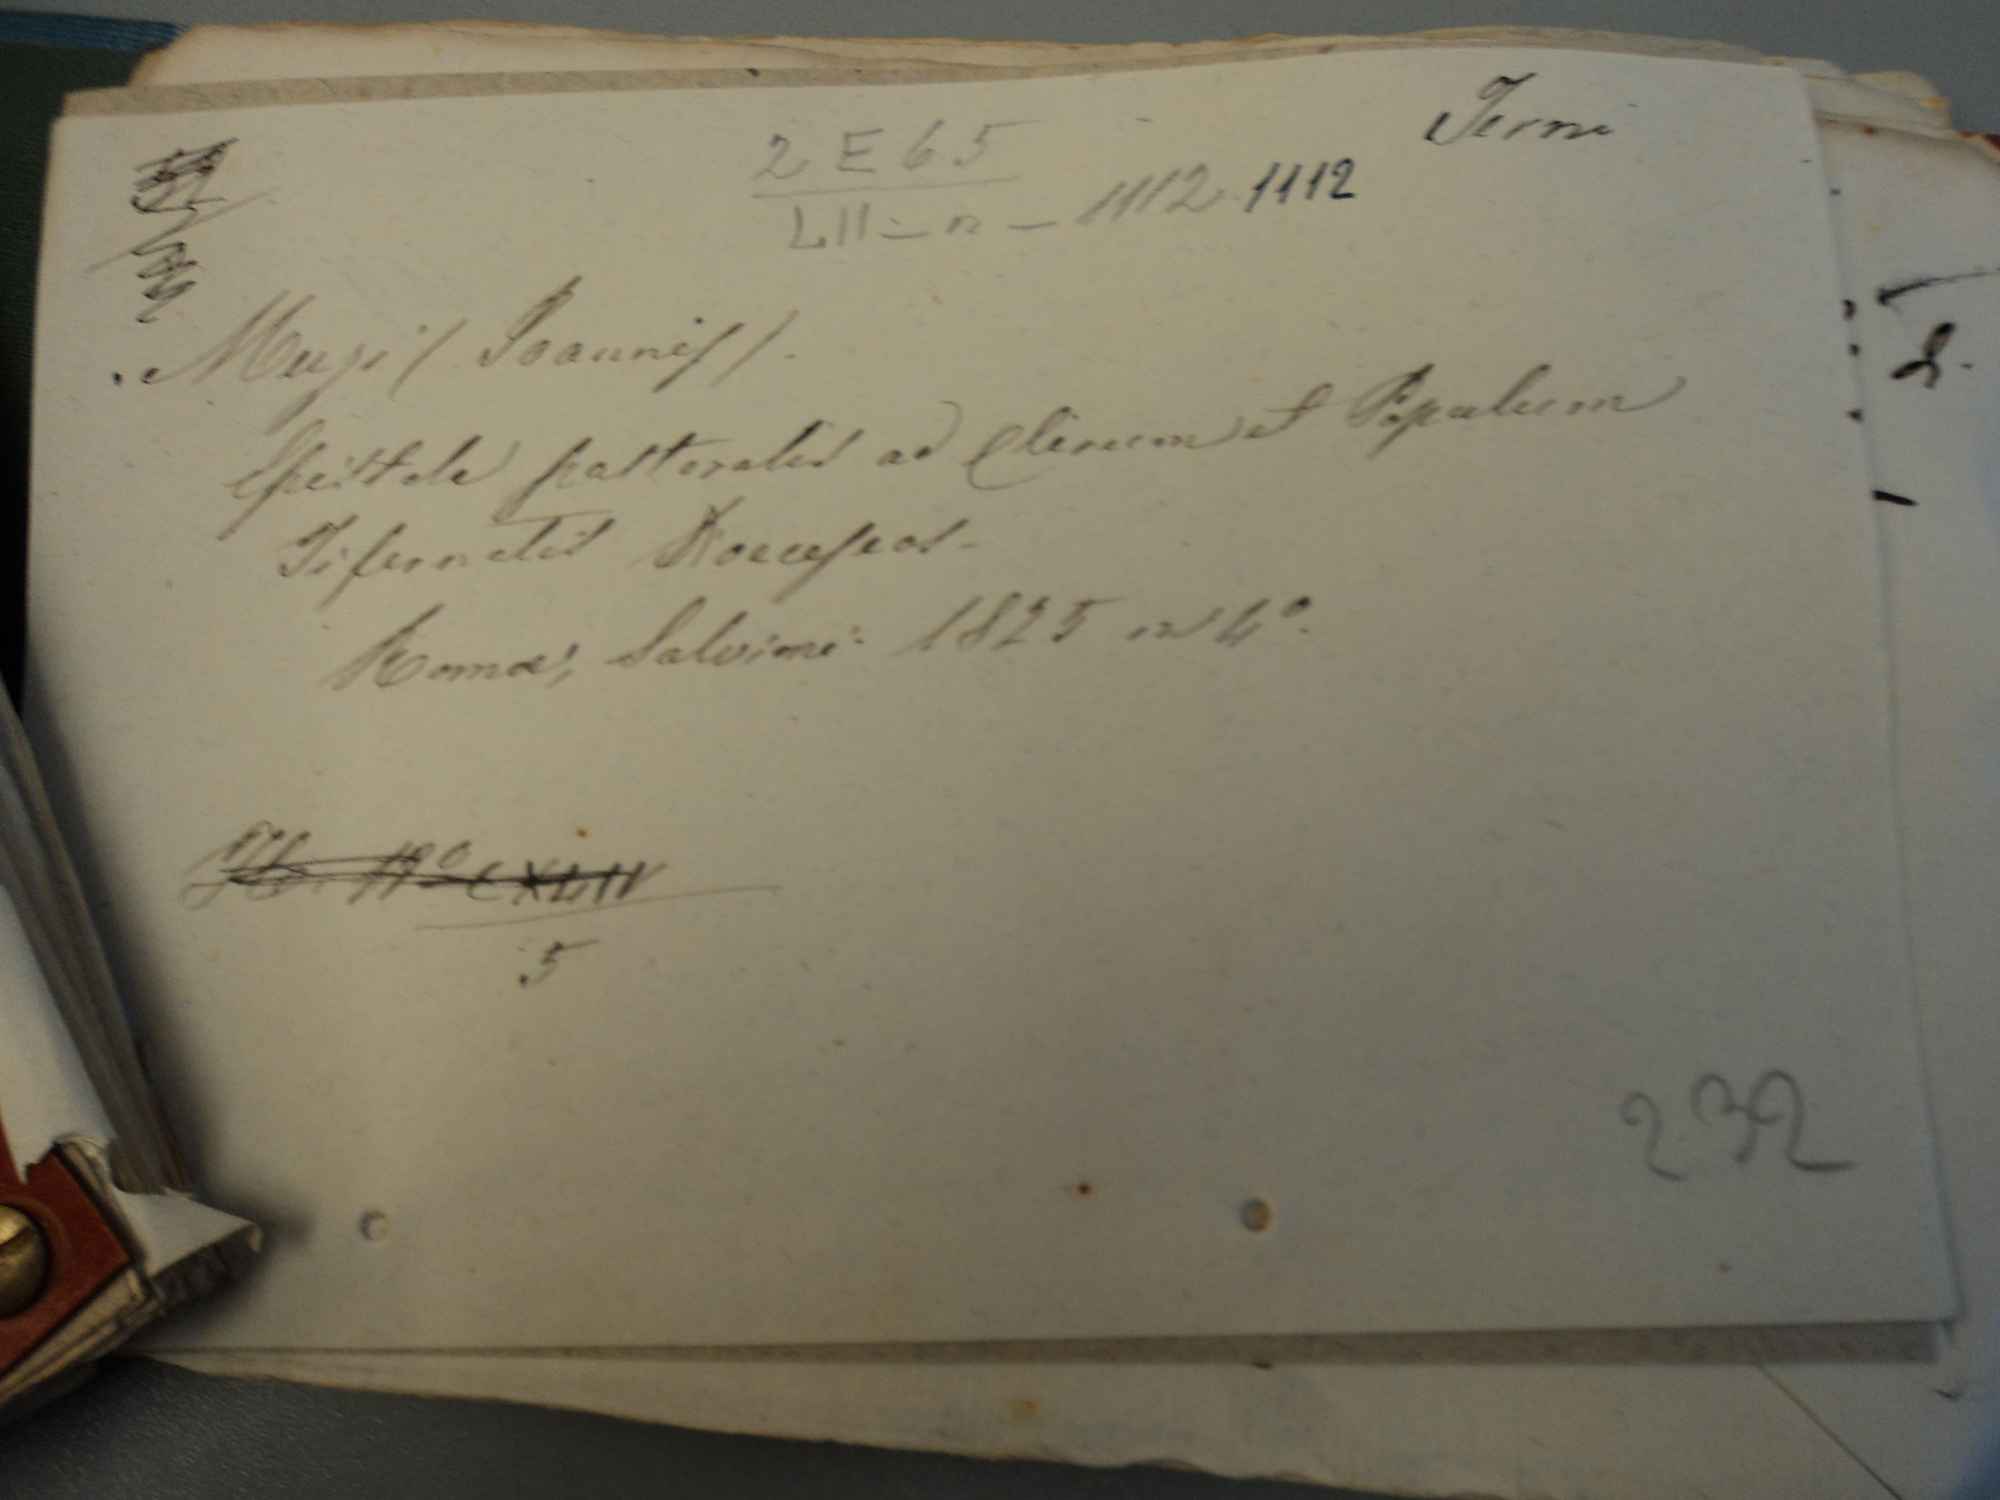 Terni
2 E 65
LII - n - 1112 1112
Muzi (Joannis).
Epistola pastoralis ad Clerum et Populum
Tifernatis Dioeceseos -
Romae, Salvioni 1825 in 4º.
5
232